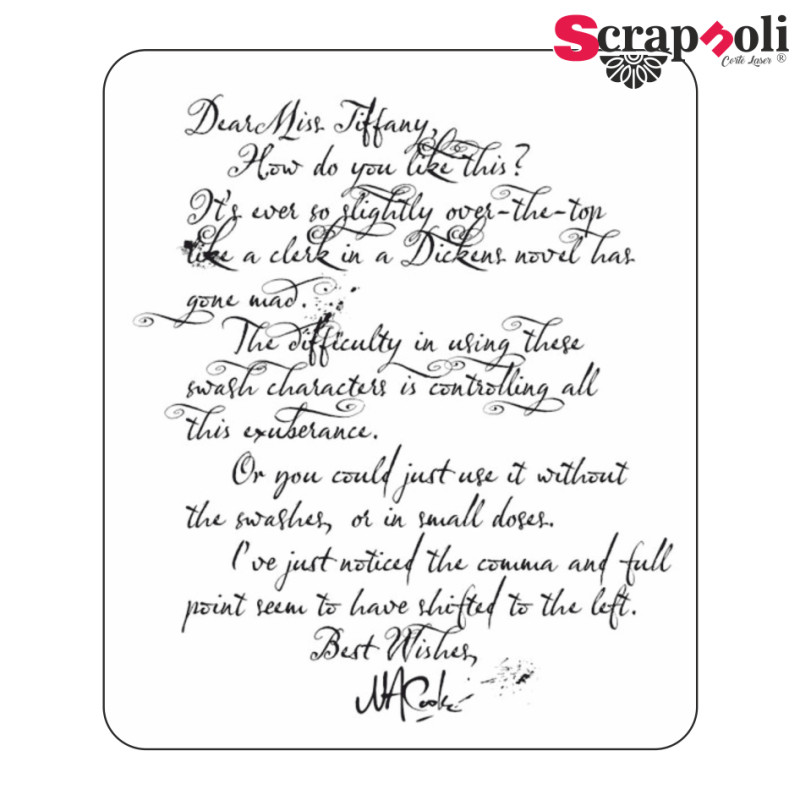 Scrapnoli
Corte Laser ®
Dear Miss Tiffany,
How do you like this?
It's ever so slightly over-the-top
like a clerk in a Dickens novel has
gone mad.
The difficulty in using these
swash characters is controlling all
this exuberance.
Or you could just use it without
the swashes, or in small doses.
I've just noticed the comma and full
point seem to have shifted to the left.
Best Wishes,
NACooke